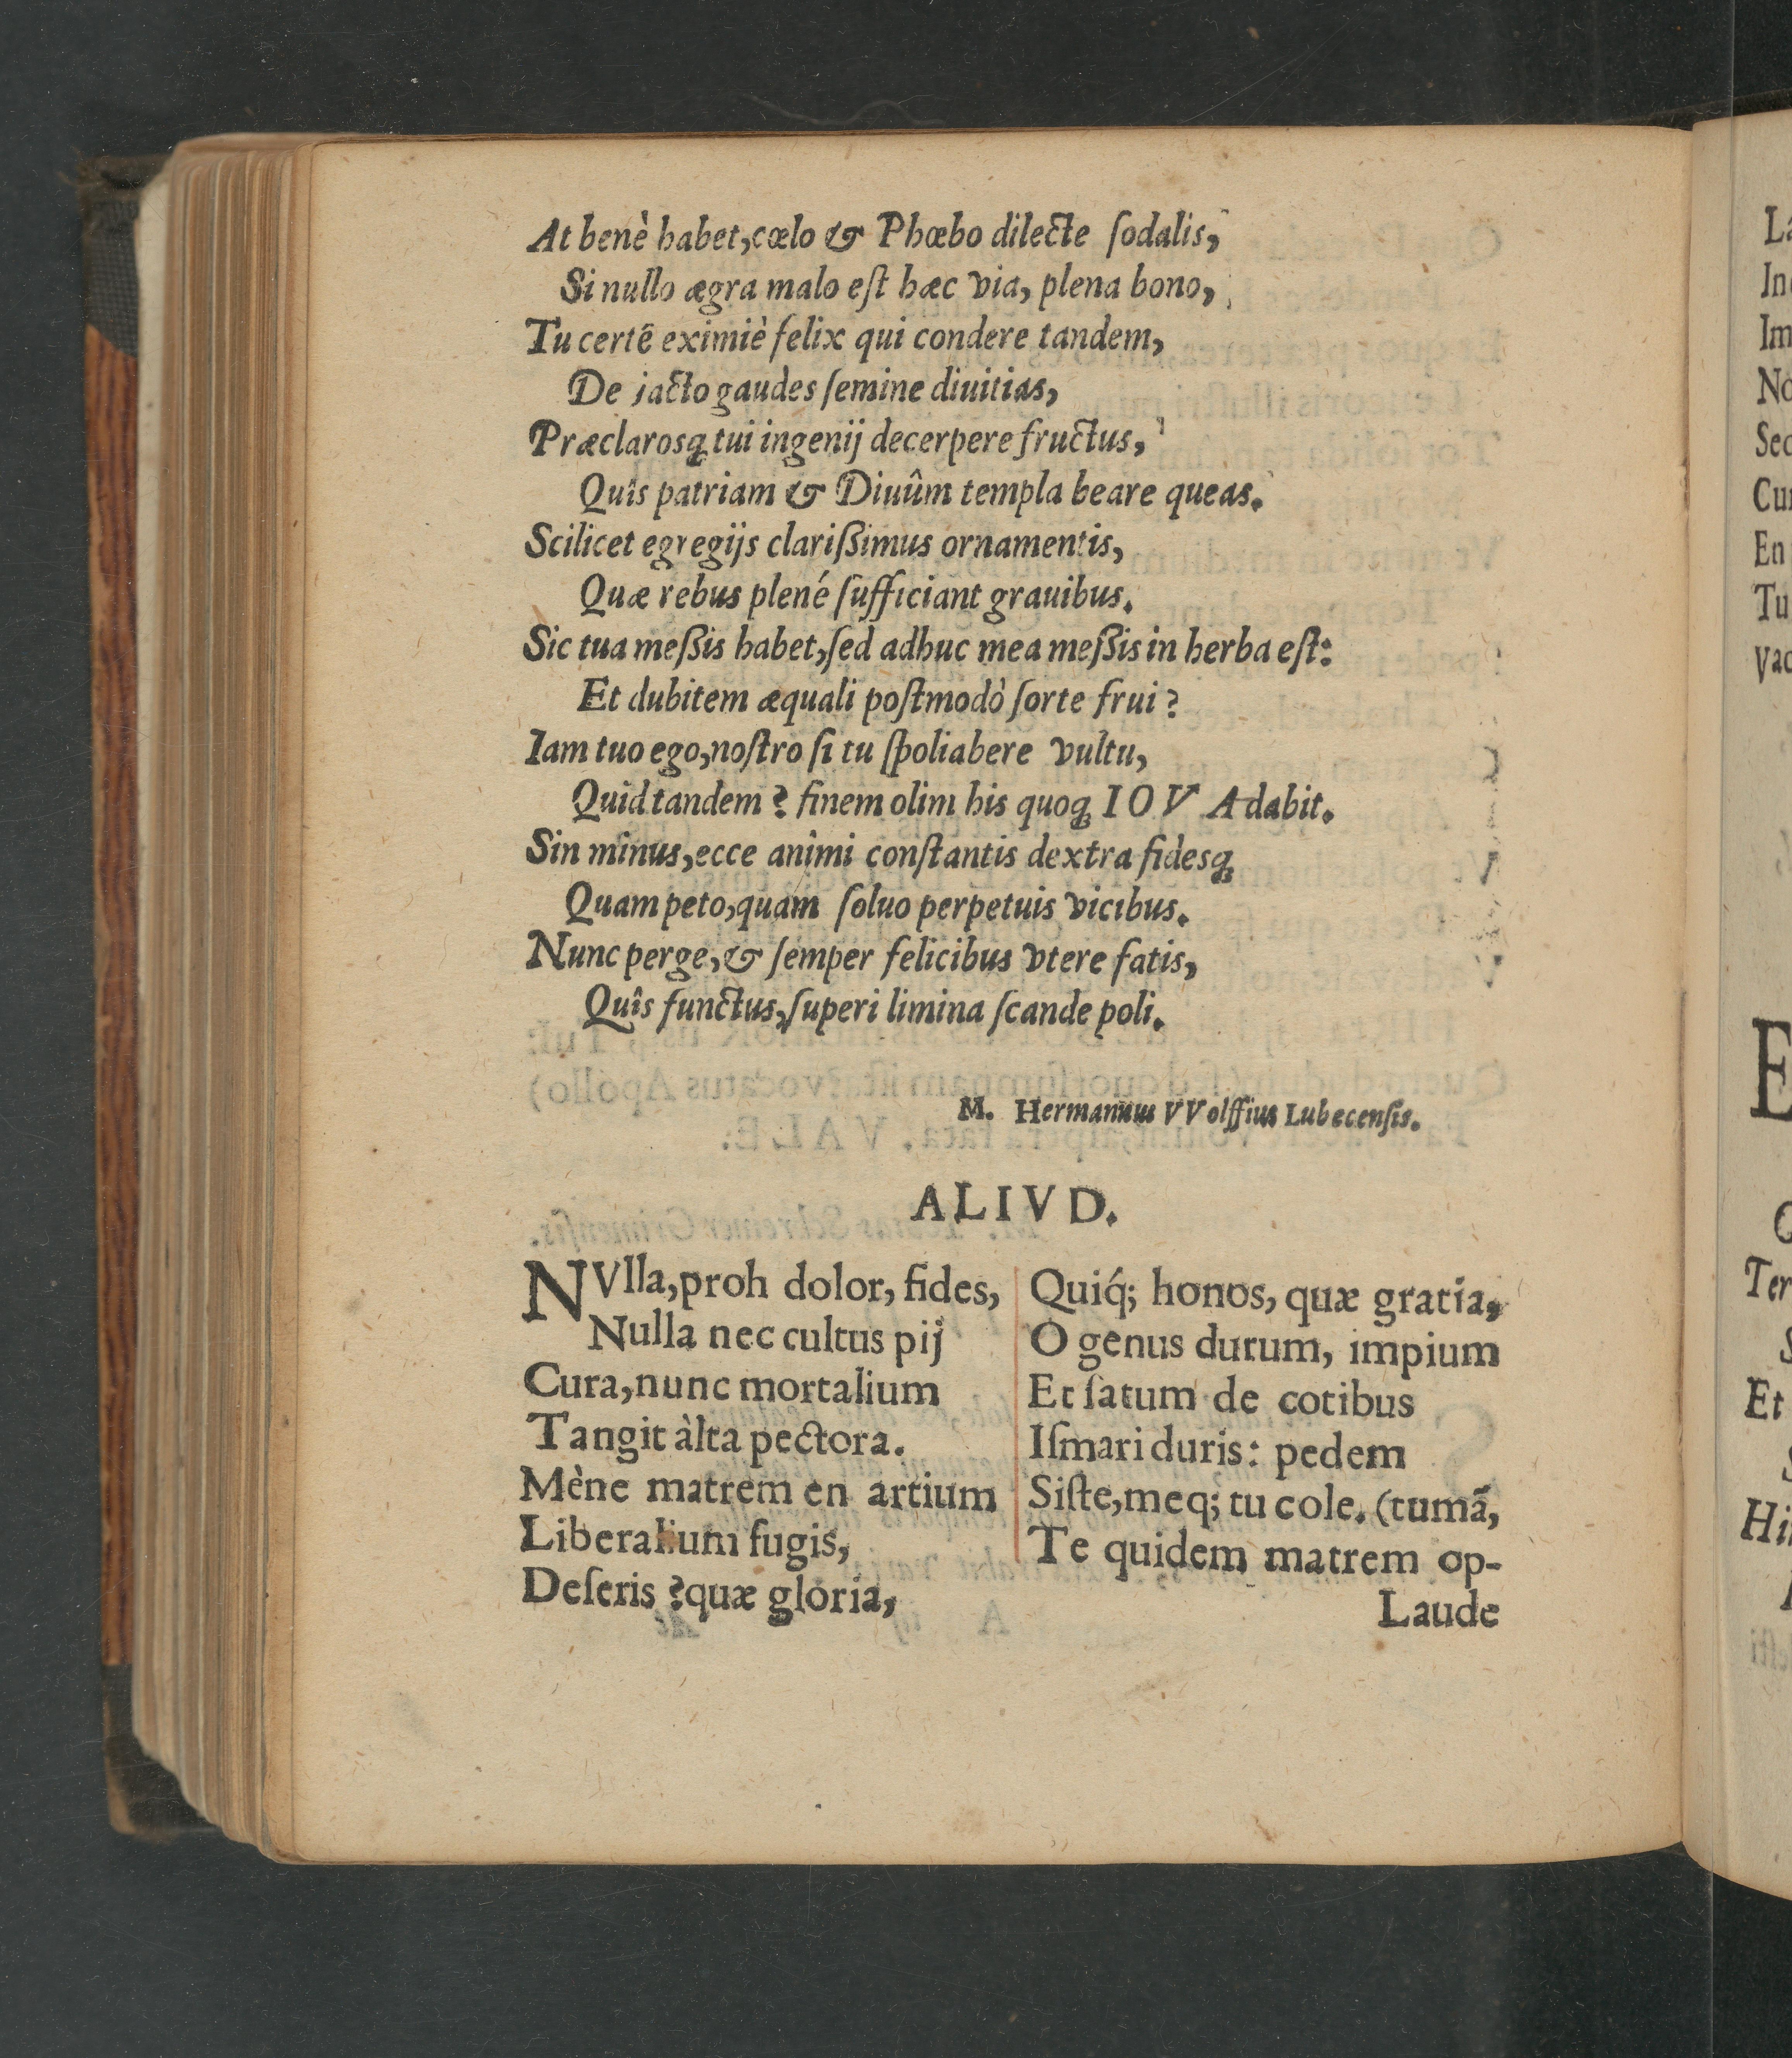 At benè habet, cœlo & Phœbo dilecte ſodalis,
Si nullo ægra malo eſt hæc via, plena bono,
Tu certẽ eximiè felix qui condere tandem,
De jacto gaudes ſemine diuitias,
Præclarosq́ tui ingenij decerpere fructus,
Quîs patriam & Diuûm templa beare queas.
Scilicet egregijs clariſsimus ornamentis,
Quæ rebus plené ſufficiant grauibus.
Sic tua meſsis habet, ſed adhuc mea meſsis in herba eſt:
Et dubitem æquali poſtmodò ſorte frui?
Iam tuo ego, noſtro ſi tu ſpoliabere vultu,
Quid tandem? finem olim his quoq IOVA dabit.
Sin minus, ecce animi conſtantis dextra fidesq
Quam peto, quam ſoluo perpetuis vicibus.
Nunc perge, & ſemper felicibus vtere fatis,
Quîs functus, ſuperi limina ſcande poli.
M. Hermannus VVolffius Lubecenſis.
ALIVD.
NVlla, proh dolor, fides,
Nulla nec cultus pij
Cura, nunc mortalium
Tangit àlta pectora.
Mène matrem en artium
Liberalium fugis,
Deſeris? quæ gloria,
Quiq́; honos, quæ gratia,
O genus durum, impium
Et ſatum de cotibus
Iſmari duris: pedem
Siſte, meq; tu cole. (tumã,
Te quidem matrem op-
Laude